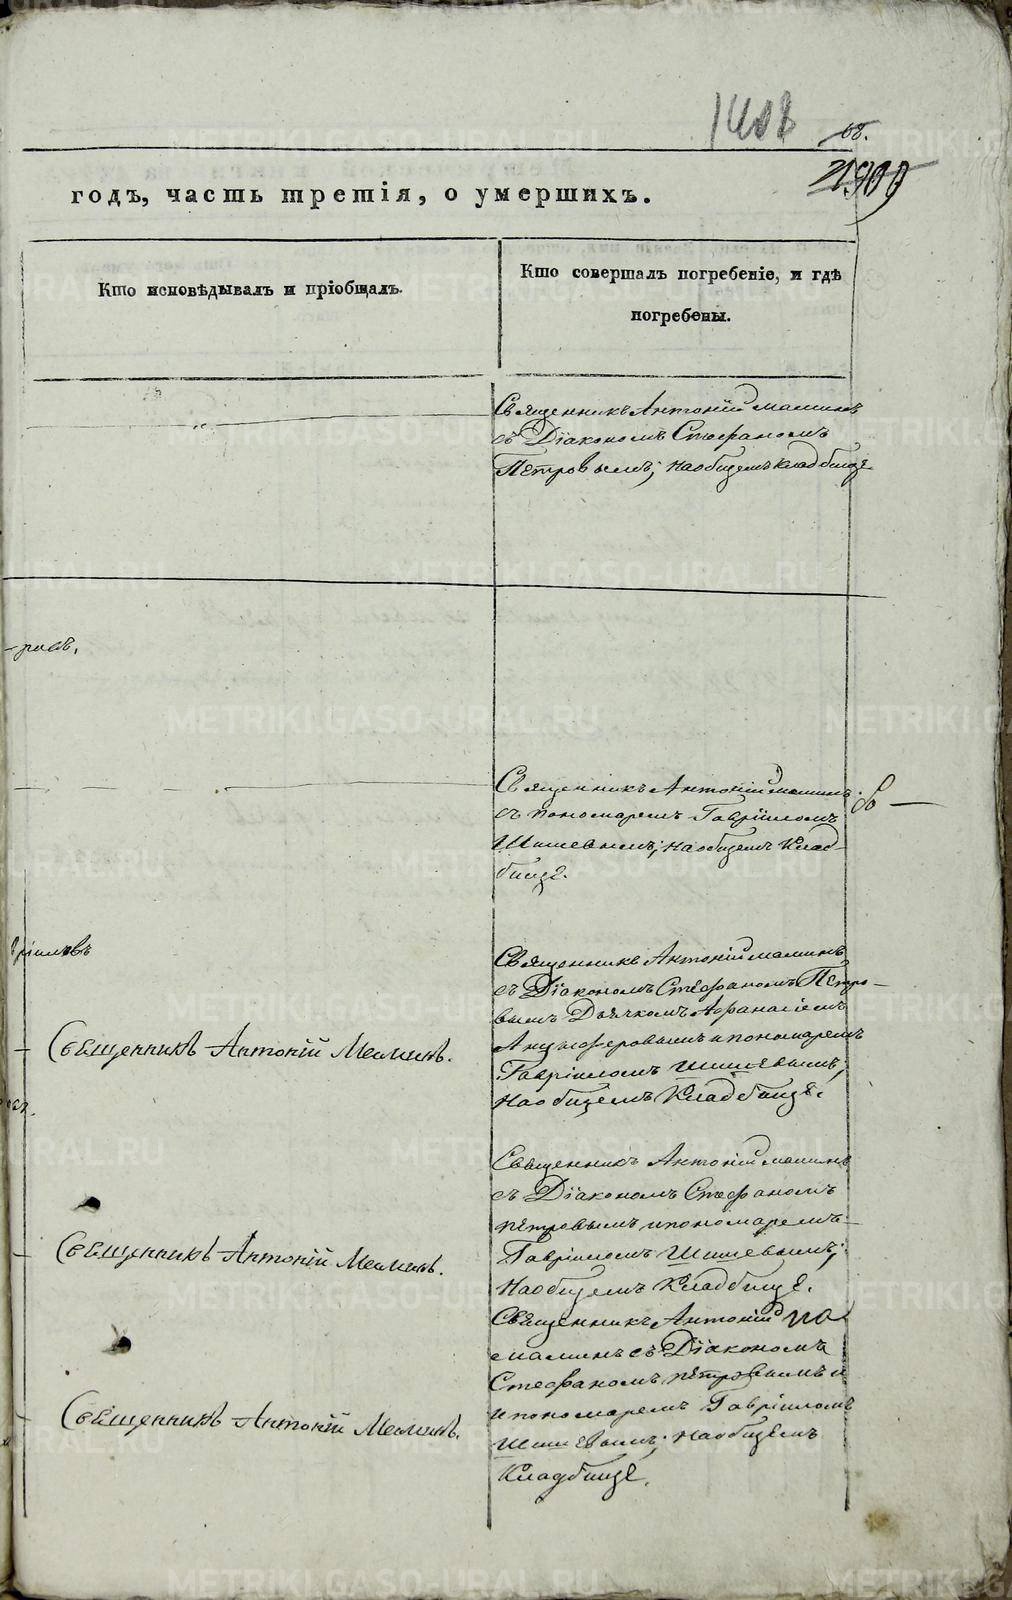 1408
68.
годъ, часть третія, о умершихъ.
Кто исповѣдывалъ и пріобщалъ.
Кто совершалъ погребеніе, и гдѣ
погребены.
Священникъ Антоній Маминъ
съ Діакономъ Стефаномъ
Петровымъ; на общемъ кладбище
Священникъ Антоній Маминъ
съ пономаремъ Гавріиломъ
Шишевымъ; на общемъ Клад-
бище.
Священникъ Антоній Маминъ
съ Діакономъ Стефаномъ Петро-
вымъ Дьячкомъ Афанасіемъ
Анцыферовымъ и пономаремъ
Священникъ Антоній Маминъ.
Гавріиломъ Шишевымъ;
на общемъ Кладбище.
Священникъ Антоній Маминъ
съ Діакономъ Стефаномъ
Петровымъ и пономаремъ
Священникъ Антоній Маминъ.
Гавріиломъ Шишевымъ;
на общемъ Кладбище.
Священникъ Антоній Ма
маминъ съ Діакономъ
Стефаномъ Петровымъ и
и пономаремъ Гавріиломъ
Священникъ Антоній Маминъ.
Шишевымъ; на общемъ
Кладбище.
METRIKI.GASO-URAL.RU